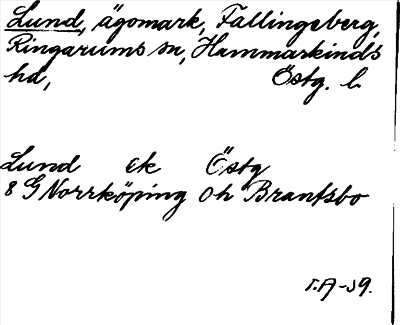 Lund, ägomark, Fallingeberg,
Ringarums sn, Hammarkinds
hd, Östg. l.
Lund ek Östg
8 G Norrköping Oh Brantsbo
T.A-39.